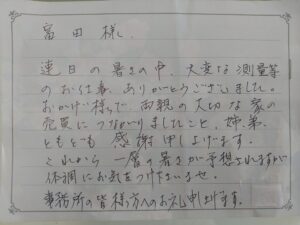 富田 様
連日の暑さの中、大変な測量等
のお仕事、ありがとうございました。
おかげ様で両親の大切な家の
売買につながりましたこと、姉弟、
ともども感謝申し上げます。
これから一層の暑さが予想されますが
体調にお気をつけ下さいませ。
事務所の皆様方へのお礼申し上げます。